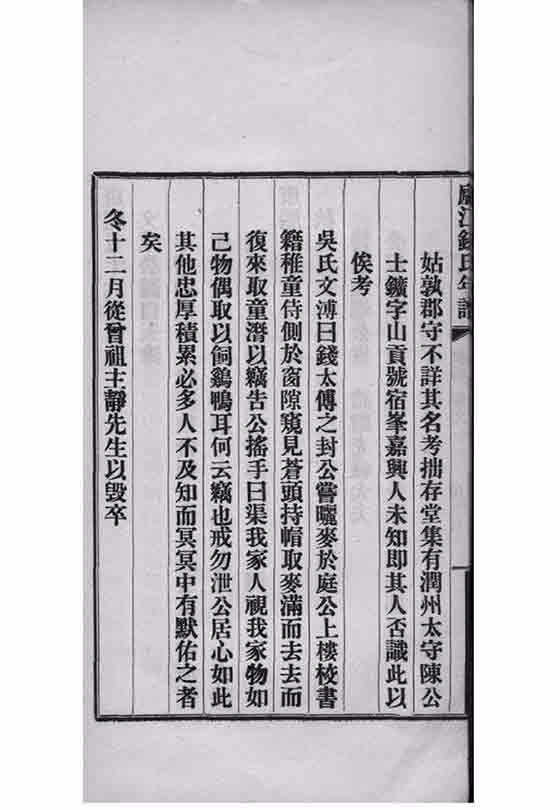 廬江錢氏年譜
姑孰郡守不詳其名考拙存堂集有潤州太守陳公
士鑛字山貢號宿峯嘉興人未知即其人否識此以
俟考
吳氏文溥曰錢太傅之封公嘗曬麥於庭公上樓校書
籍稚童侍側於窗隙窺見蒼頭持帽取麥滿而去去而
復來取童潛以竊告公搖手曰渠我家人視我家物如
己物偶取以飼鷄鴨耳何云竊也戒勿泄公居心如此
其他忠厚積累必多人不及知而冥冥中有默佑之者
矣
冬十二月從曾祖主靜先生以毀卒